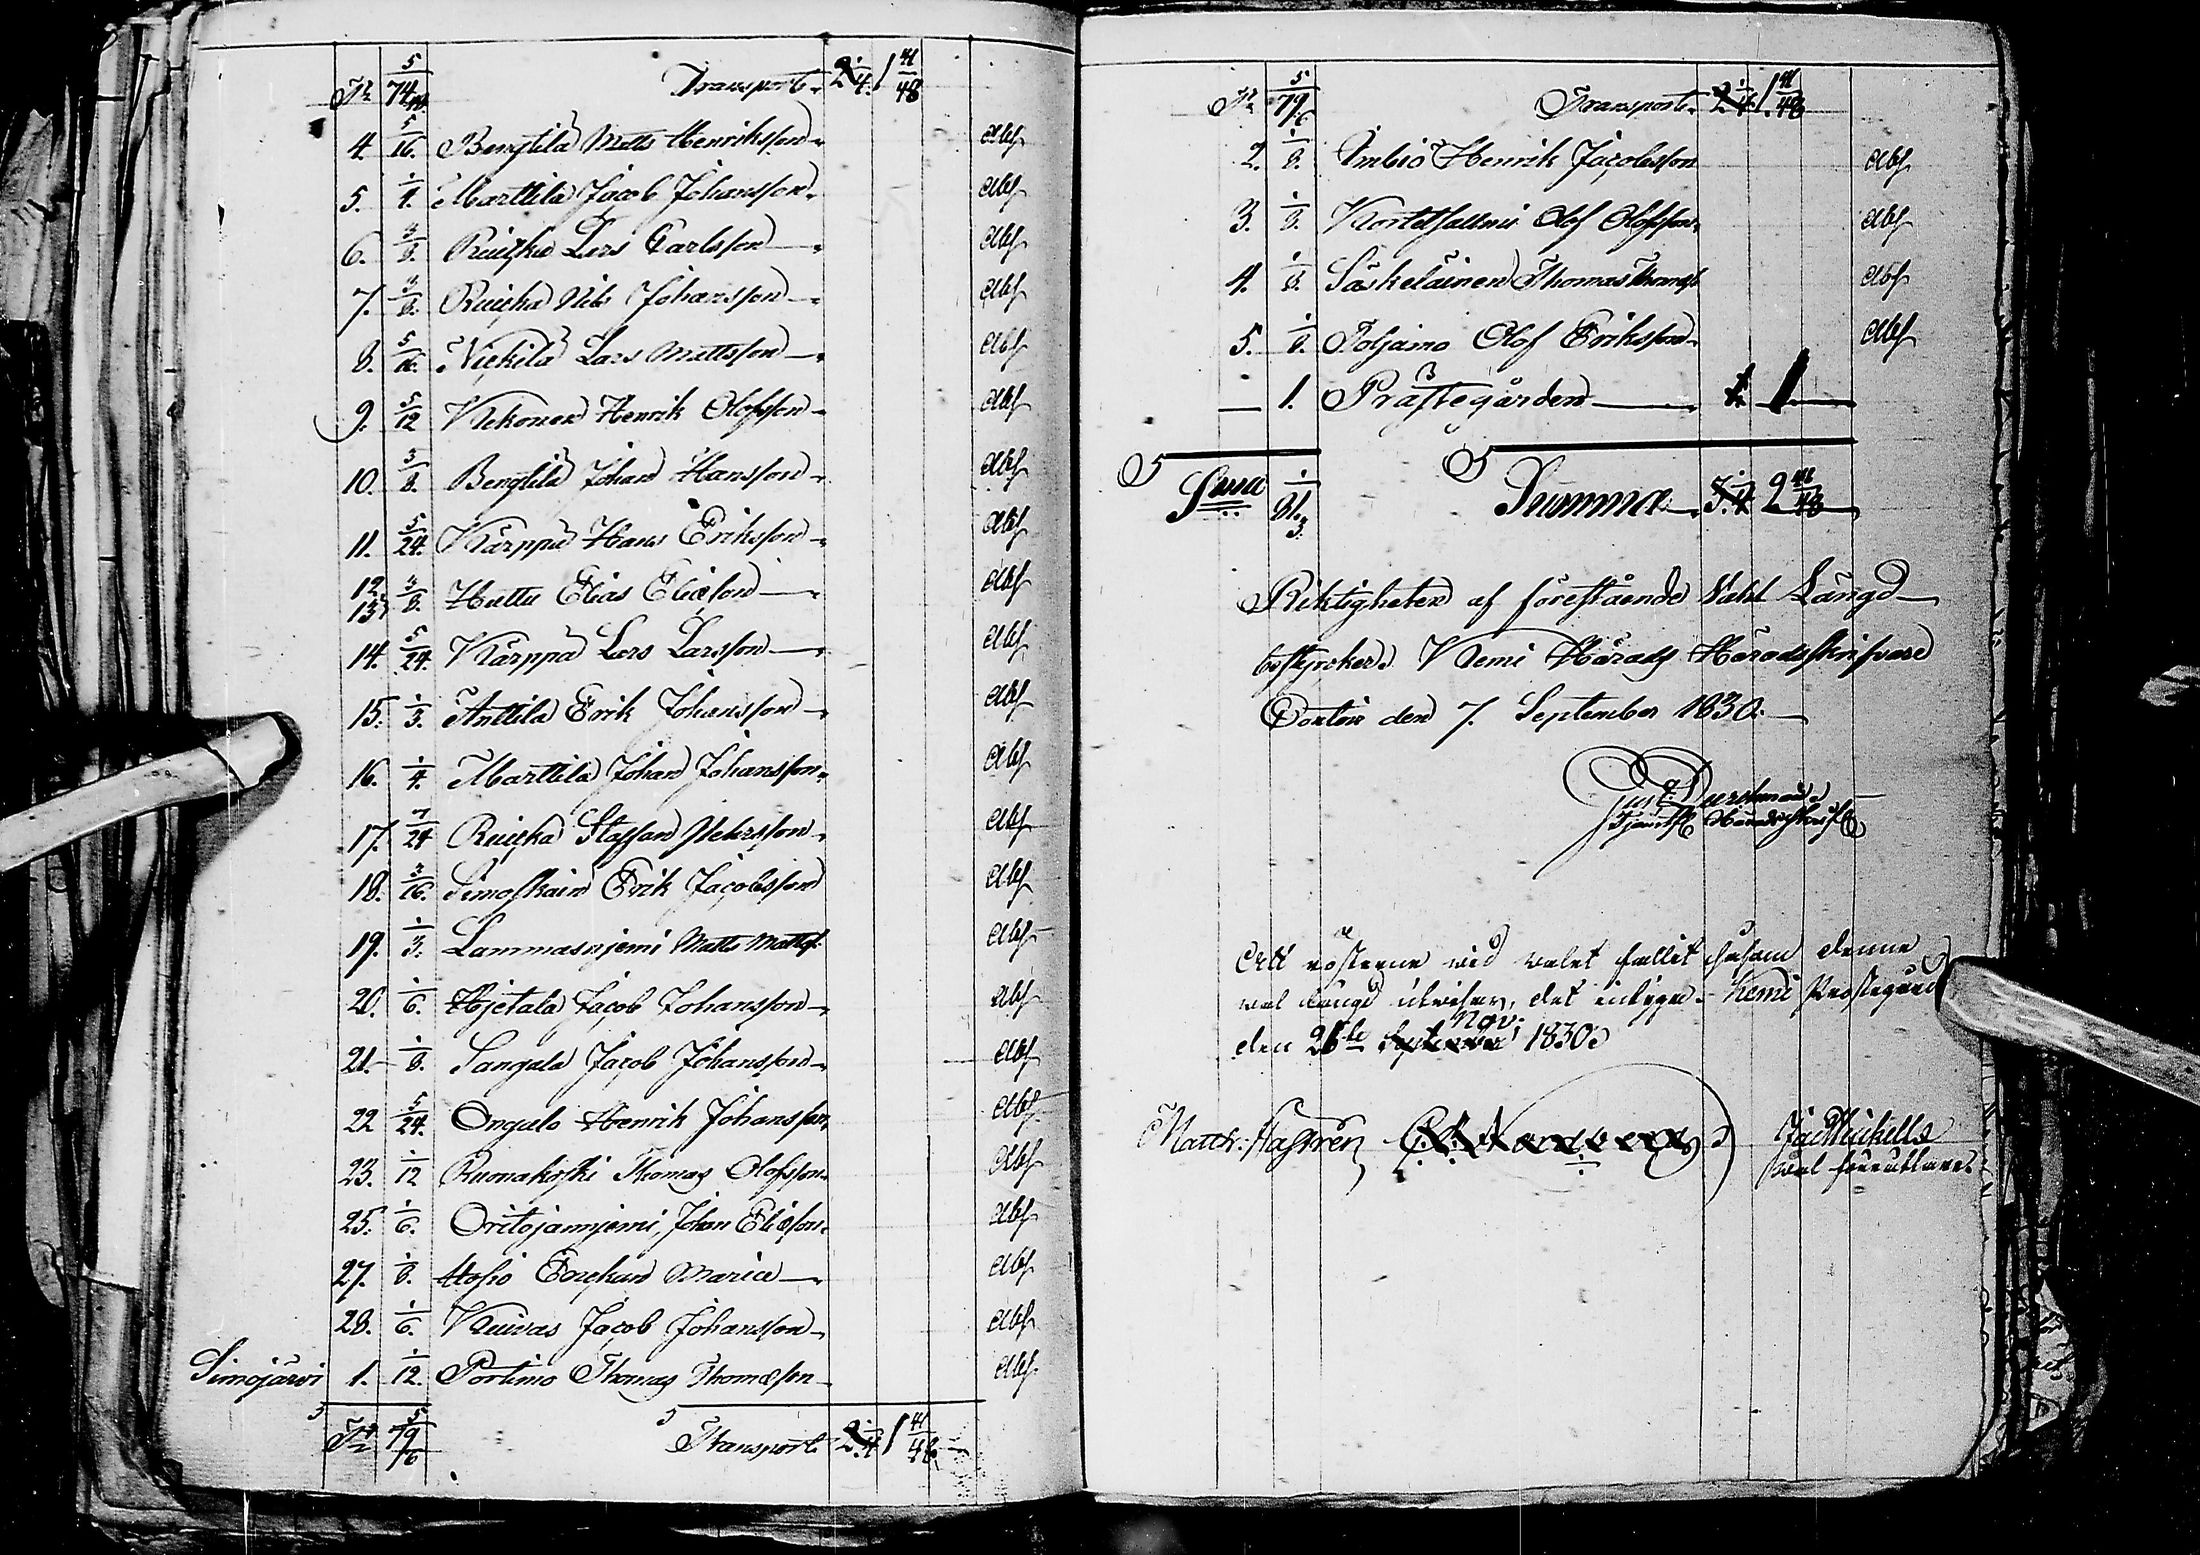 Tr 74 5/48. Transport. 2 1/4. 1 41/48
4. 5/16. Bengtila Matts Henriksson. Abs
5. 1/4. Marttila Jacob Johansson. Abs
6. 3/8. Ruiska Lars Carlsson Abs
7. 3/8. Ruiska Nils Johansson Abs
8. 5/16. Nickilä Lars Mattsson Abs
9. 5/12 Kekonen Henrik Olofsson Abs
10. 3/8. Bengtila Johan Hansson Abs
11. 5/24. Kärppä Hans Eriksson Abs
12. 13. 3/8. Huttu Elias Eliæson Abs
14. 5/24. Kärppä Lars Larsson Abs
15. 1/3. Anttila Erik Johansson Abs
16. 1/4. Marttila Johan Johansson Abs
17. 7/24 Ruiska Staffan Abs
18. 3/16. Simoskain Erik Jacobsson Abs
19. 1/3. Lammasnjemi Matts Mattss. Abs
20. 1/6. Hjetala Jacob Johansson Abs
21. 1/8. Sangala Jacob Johansson Abs
22 5/24. Ongalo Henrik Johansson Abs
23. 1/12 Ruonakoski Thomas Olofsson Abs
25. 1/6. Johan Eliæson. Abs
27. 1/8. Hosio Enckan Maria Abs
28. 1/6. Kuivas Jacob Johansson Abs
Simojärvi 1. 1/12. Portimo Thomas Thomæson Abs
Tr 79 5/6 Transport 2 1/4 1 41/48
Tr 79 5/6 Transport. 2 1/4 1 41/48
2. 1/8. Imbiö Henrik Jacobsson Abs
3. 1/8. Olof Olofsson. Abs
4. 1/8. Säskeläinen Thomas Thomæs. Abs
5. 1/8. Poljamo Olof Eriksson Abs
1. Prästegården 1
Summa 81. 1/3. Summa 2 41/48
Riktigheten af förestående Vahl Längd
bestyrcker. Kemi Härads Häradsskrifvare
Contoir den 7. September 1830.
Häradsskrif
Att rösterne vid valet fallit såsom denne
val längd utviser, det intygar. Kemi Prostegård
den 26te September Nov. 1830.
Matth. Castrén Jac Wickella